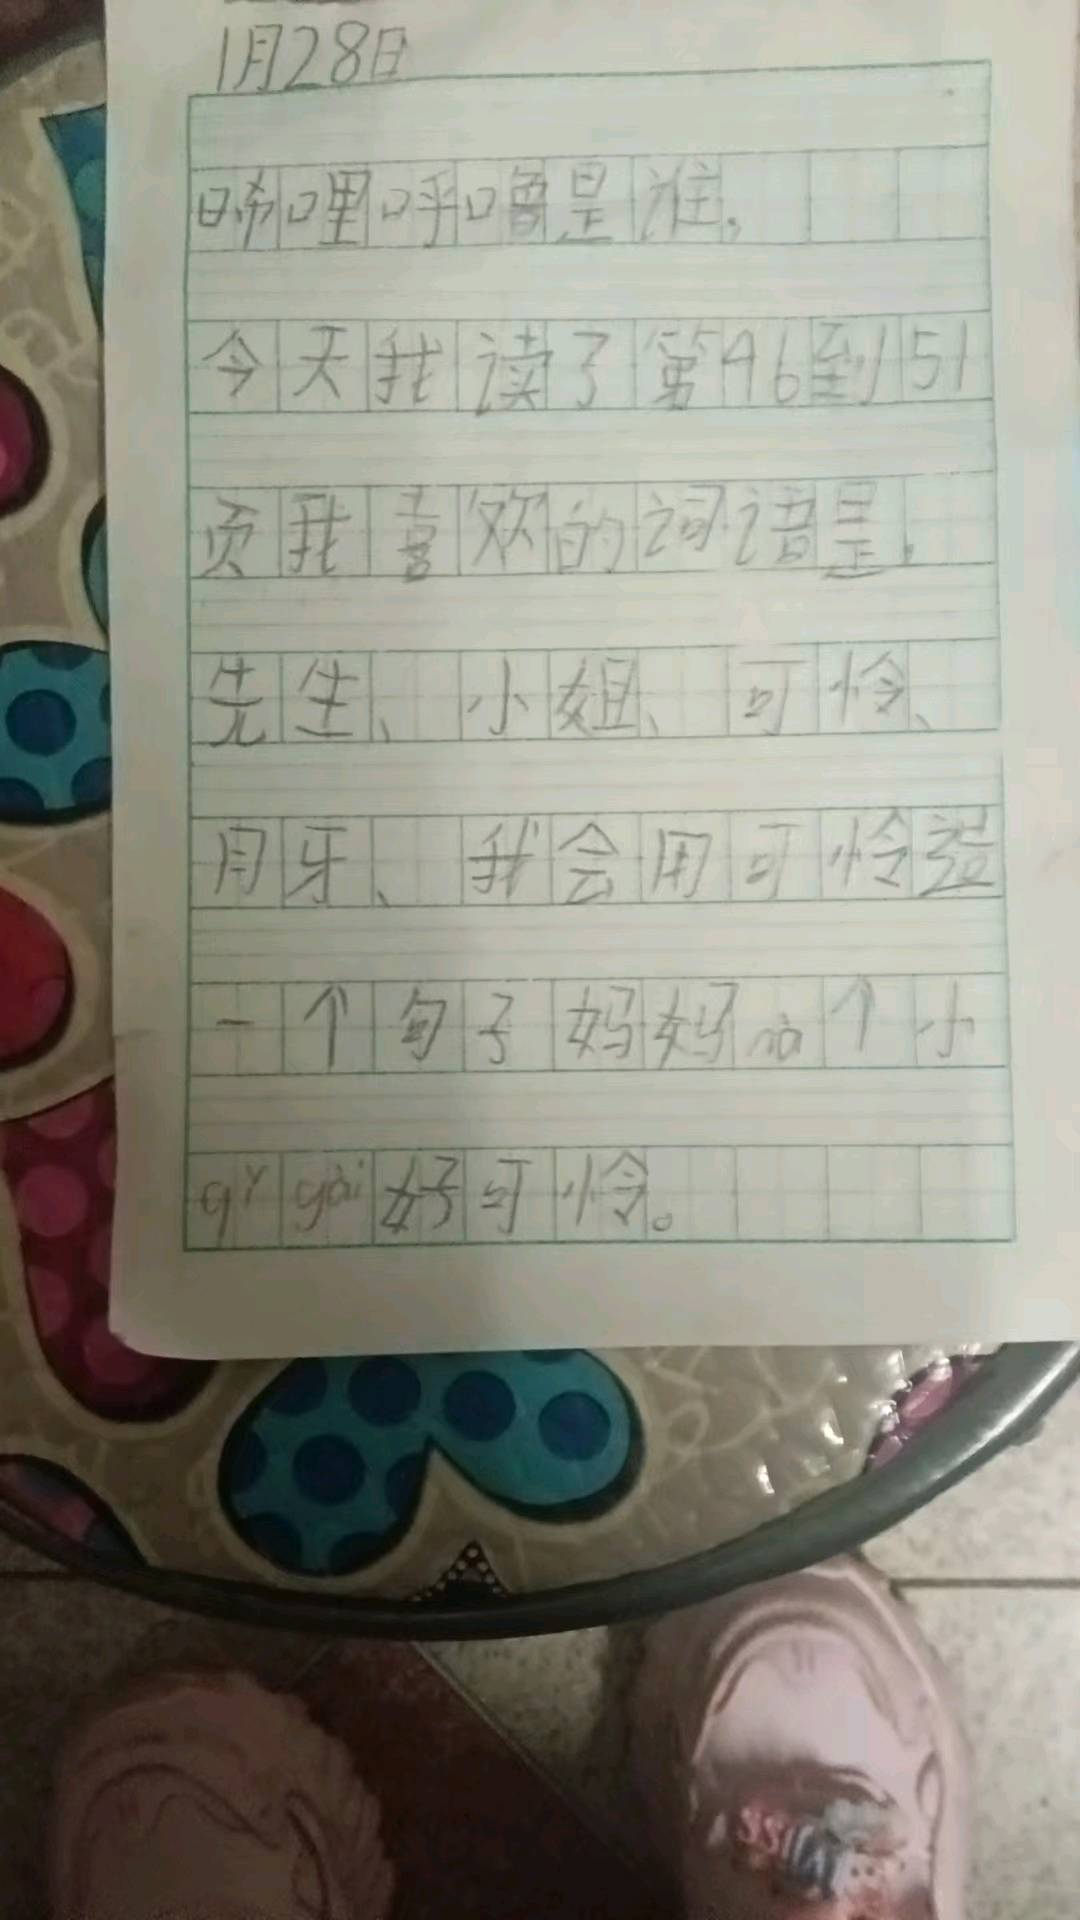 1月28日
唏哩呼噜是谁。
今天我读了第46到151
页我喜欢的词语是,
先生、小姐、可怜、
月牙、我会用可怜造
一个句子妈妈nà个小
qǐ gài好可怜。